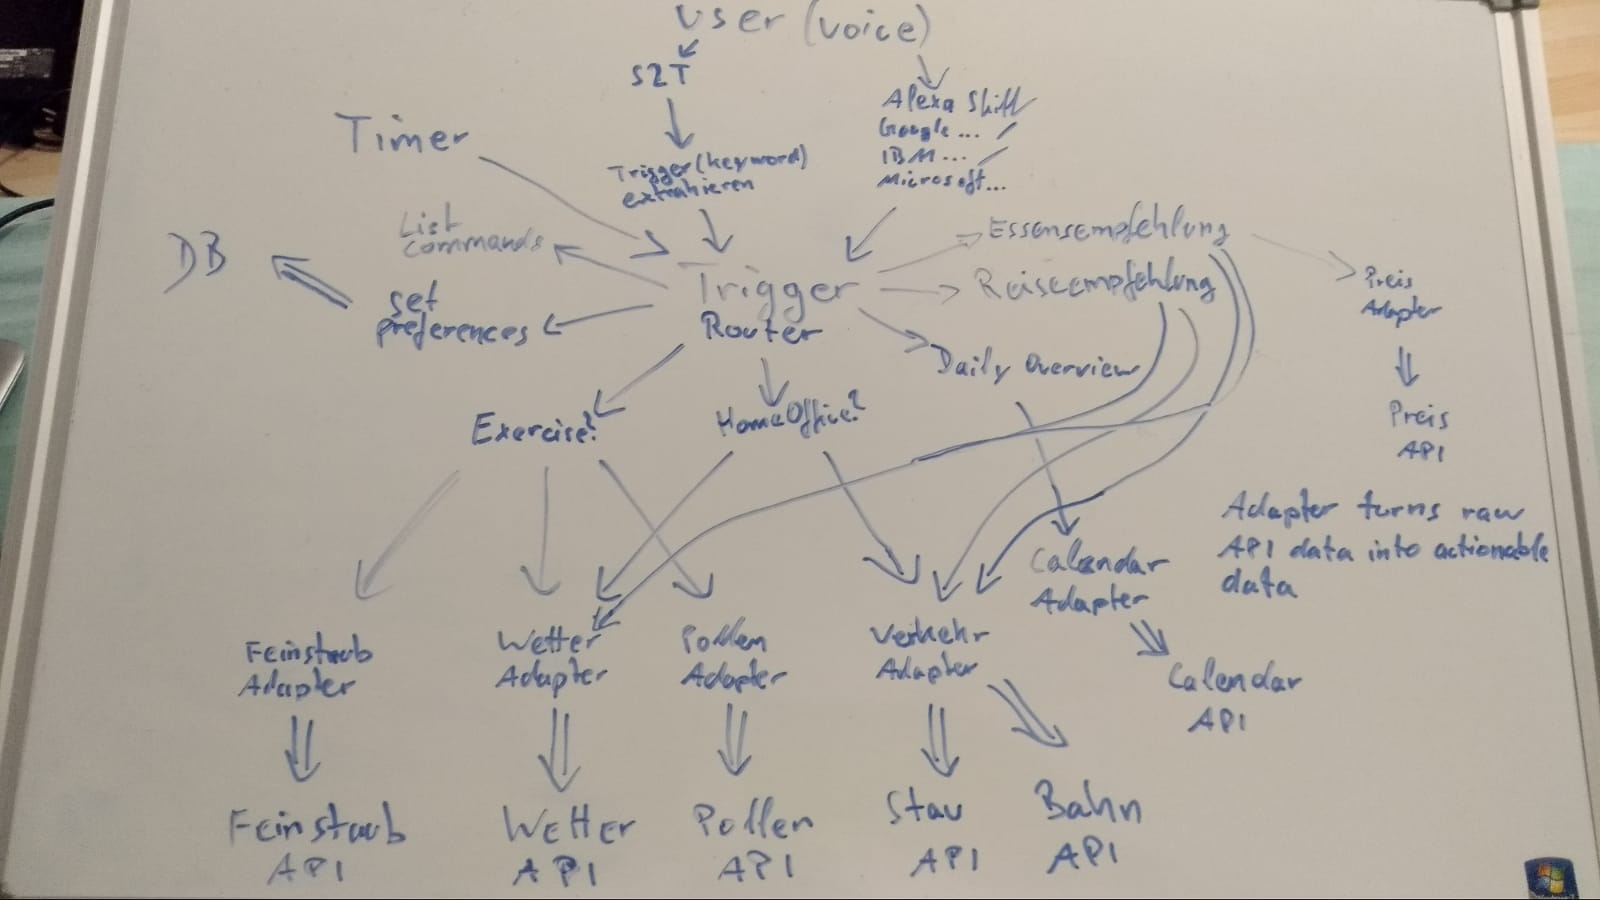 User (voice)
S2T
Alexa Skill
Google ...
IBM ...
Microsoft...
Timer
Trigger (keyword)
extrahieren
List
commands
DB
set
preferences
Trigger
Router
Essensempfehlung
Reiseempfehlung
Daily Overview
Preis
Adapter
Preis
API
Exercise?
HomeOffice?
Adapter turns raw
API data into actionable
data
Calendar
Adapter
Calendar
API
Feinstaub
Adapter
Wetter
Adapter
Pollen
Adapter
Verkehr
Adapter
Feinstaub
API
Wetter
API
Pollen
API
Stau
API
Bahn
API